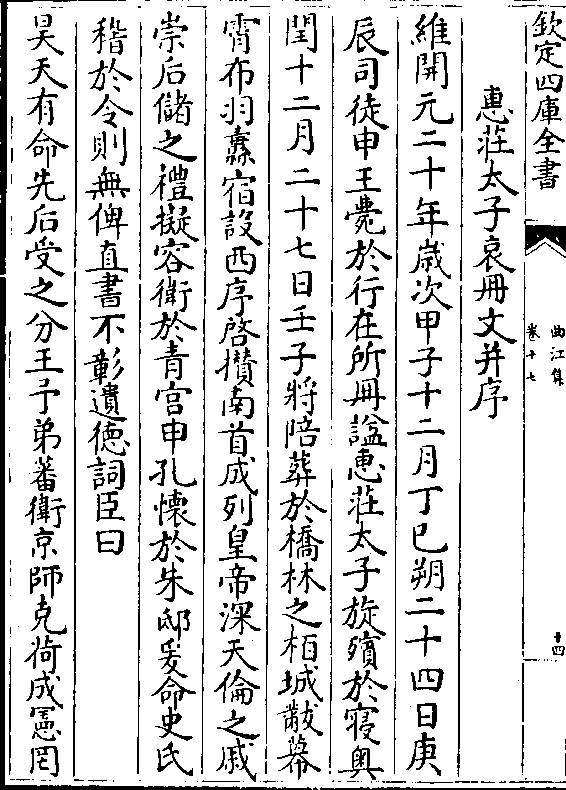 欽定四庫全書
曲江集
卷十七
十四
惠莊太子哀冊文并序
維開元二十年歲次甲子十二月丁巳朔二十四日庚
辰司徒申王薨於行在所冊諡惠莊太子旋殯於寢奥
閏十二月二十七日壬子將陪葬於橋林之柏城黻幕
霄布羽纛宿設西序啓攅南首成列皇帝深天倫之戚
崇后儲之禮擬容衛於青宫申孔懐於朱邸爰命史氏
稽於令則無俾直書不彰遺徳詞臣曰
昊天有命先后受之分王予弟蕃衛京師克荷成憲罔